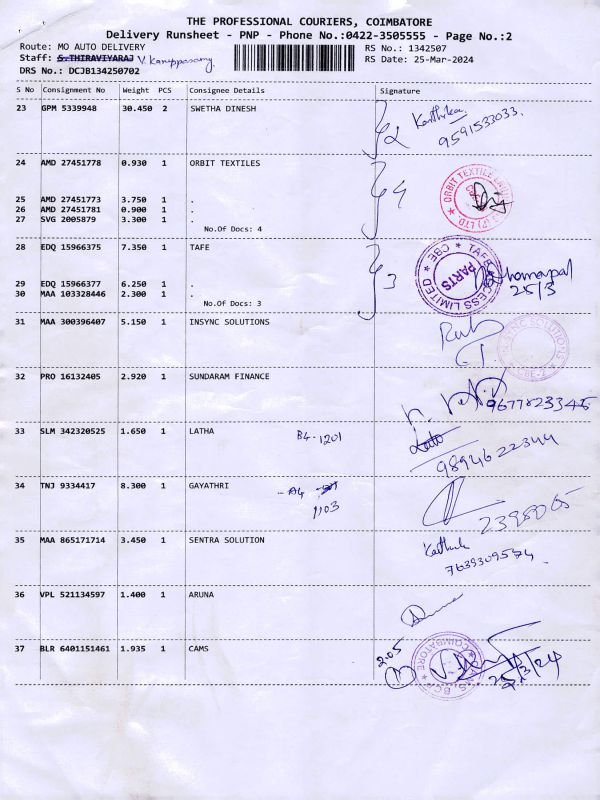 THE PROFESSIONAL COURIERS, COIMBATORE
Delivery Runsheet - PNP - Phone No.:0422-3505555 - Page No.:2
Route: MO AUTO DELIVERY
RS No.: 1342507
Staff: S.THIRAVIYARAJ V. Karuppasamy
RS Date: 25-Mar-2024
DRS No.: DCJB134250702
S No Consignment No Weight PCS Consignee Details Signature
23 GPM 5339948 30.450 2 SWETHA DINESH 2 Karthika
9591533033.
24 AMD 27451778 0.930 1 ORBIT TEXTILES 4
25 AMD 27451773 3.750 1 .
26 AMD 27451781 0.900 1 .
27 SVG 2005879 3.300 1 .
No.Of Docs: 4
28 EDQ 15966375 7.350 1 TAFE 3
29 EDQ 15966377 6.250 1 .
25/3
30 MAA 103328446 2.300 1 .
No.Of Docs: 3
31 MAA 300396407 5.150 1 INSYNC SOLUTIONS
32 PRO 16132405 2.920 1 SUNDARAM FINANCE
9677823345
33 SLM 342320525 1.650 1 LATHA B4-1201
9894622344
34 TNJ 9334417 8.300 1 GAYATHRI - A4
1103
35 MAA 865171714 3.450 1 SENTRA SOLUTION
36 VPL 521134597 1.400 1 ARUNA Aruna
37 BLR 6401151461 1.935 1 CAMS 2.05
25/3/24